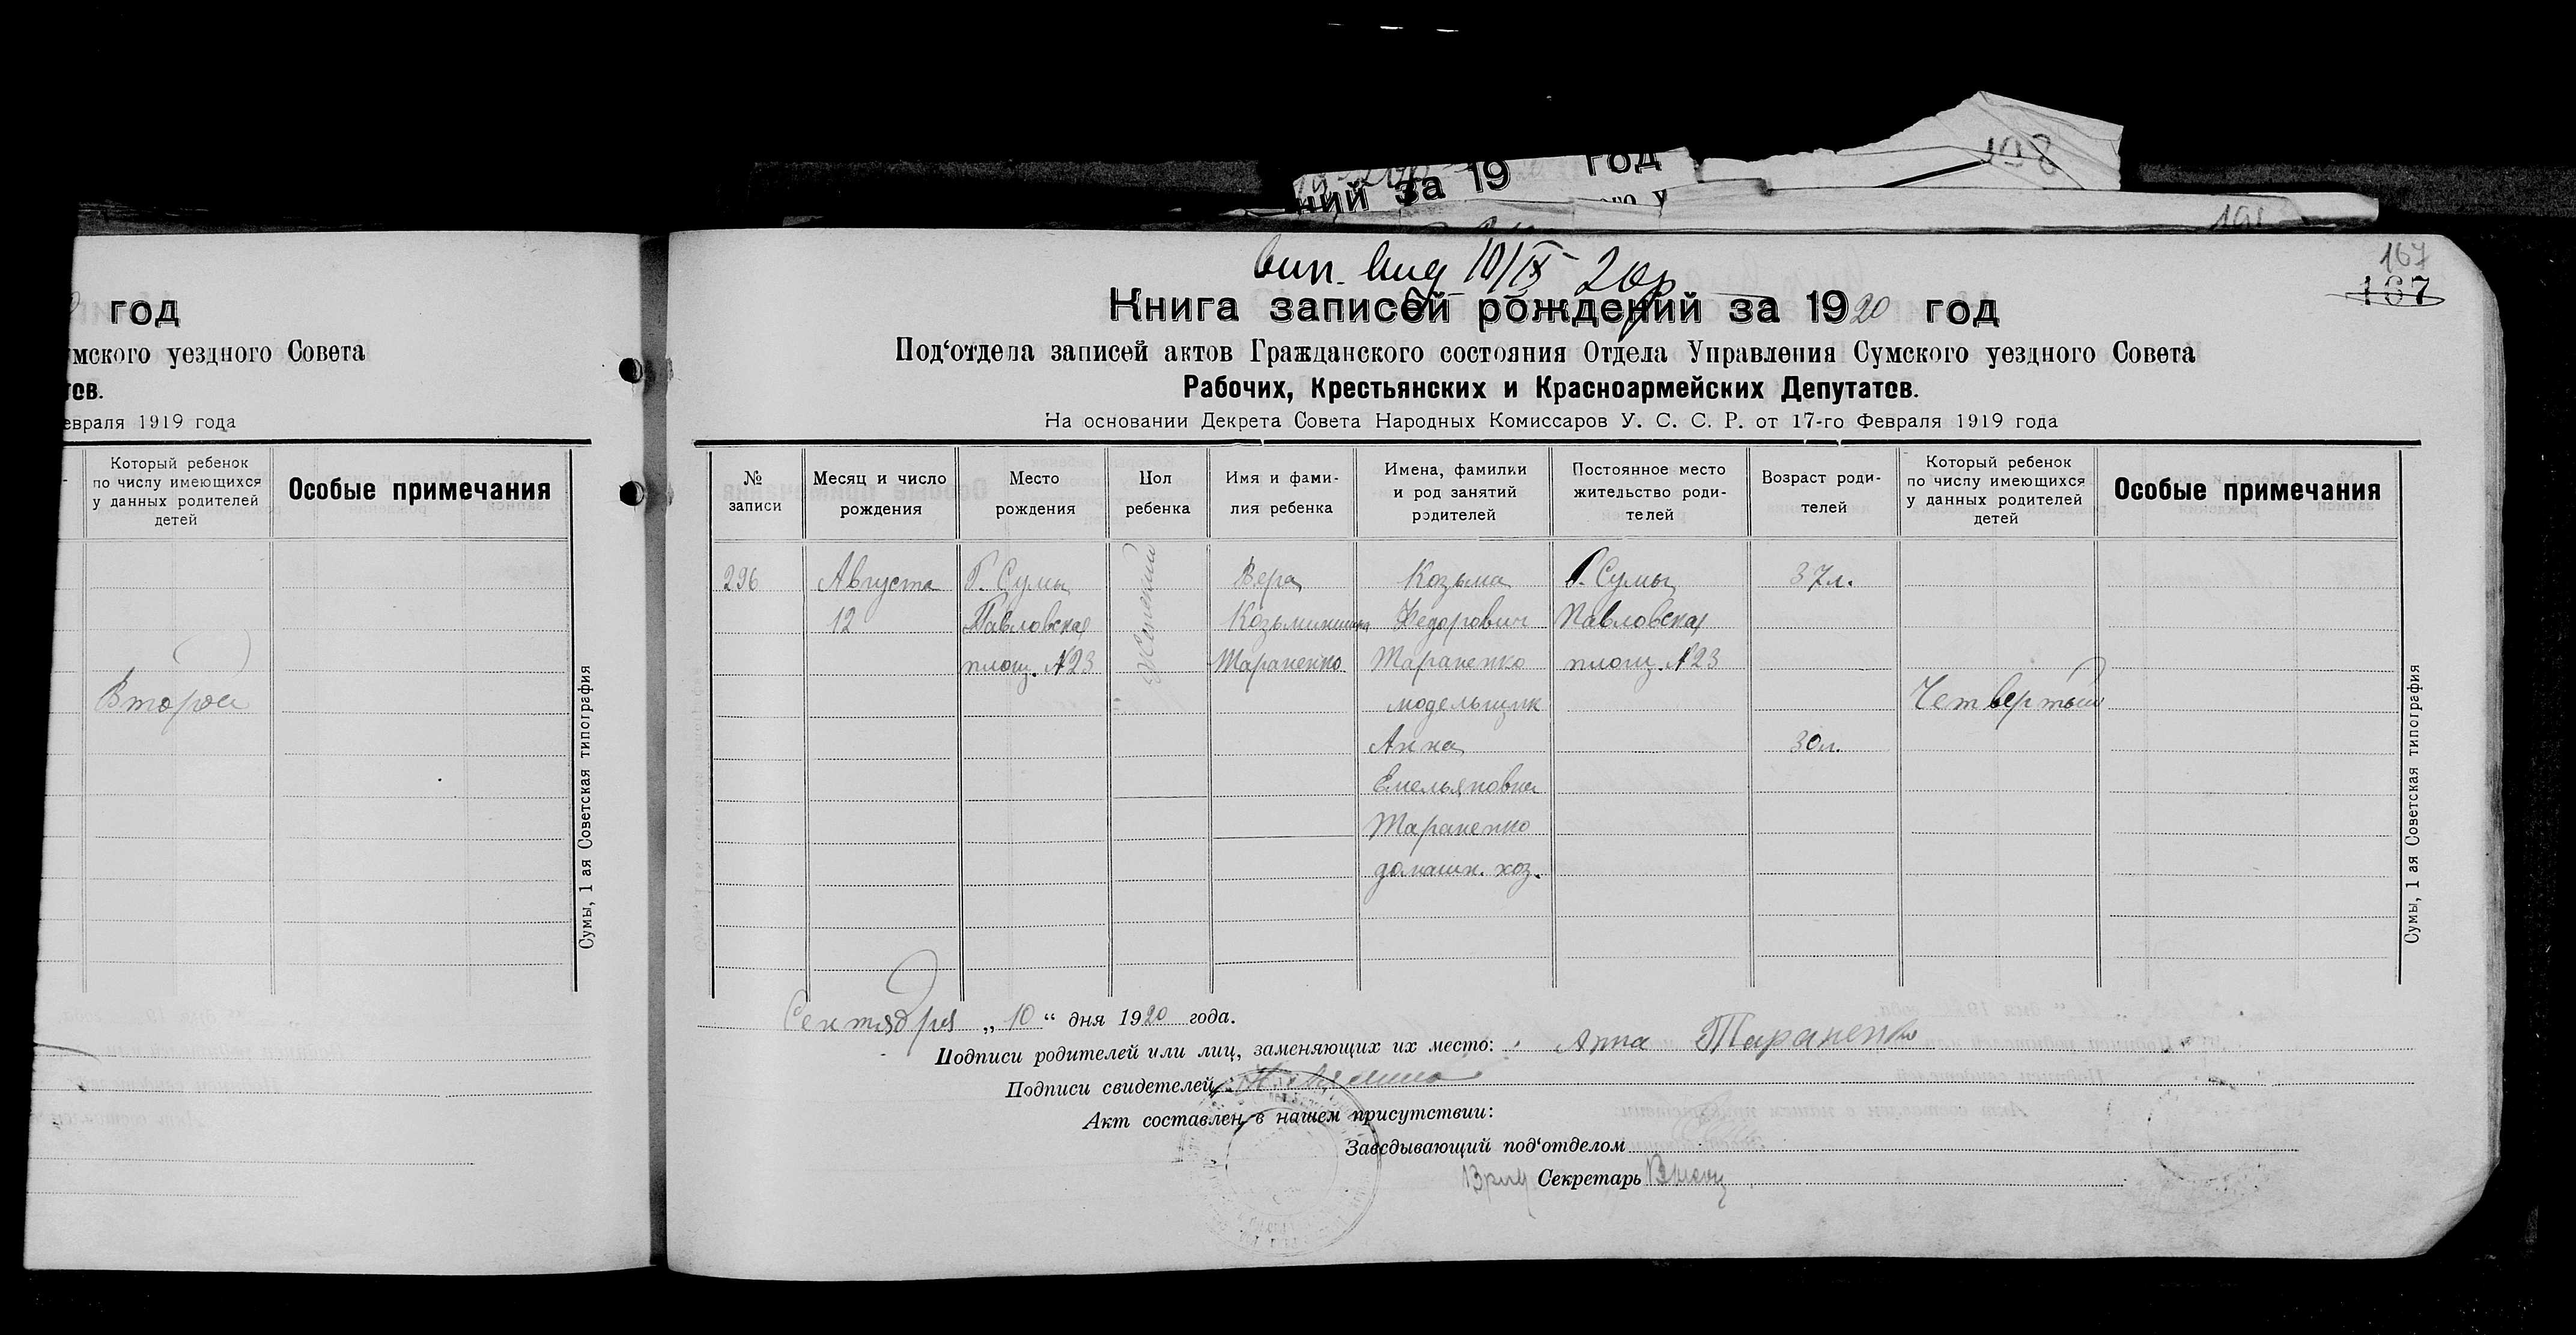 108
ний за 19 год
167
167
вип. вид 10/IX 20р
год
умского уездного Совета
тов.
евраля 1919 года
Который ребенок
по числу имеющихся
у данных родителей
детей
Особые примечания
Второй
Сумы, 1 ая Советская типография
Книга записей рождений за 1920 год
Под'отдела записей актов Гражданского состояния Отдела Управления Сумского уездного Совета
Рабочих, Крестьянских и Красноармейских Депутатов.
На основании Декрета Совета Народных Комиссаров У. С. С. Р. от 17-го Февраля 1919 года
№
записи
Месяц и число
рождения
Место
рождения
Пол
ребенка
Имя и фами-
лия ребенка
Имена, фамилии
и род занятий
родителей
Постоянное место
жительство роди-
телей
Возраст роди-
телей
Который ребенок
по числу имеющихся
у данных родителей
детей
Особые примечания
296
Августа
12
Г. Сумы
Павловская
площ. №23
Женский
Вера
Козьминишна
Тараненко
Козьма
Федорович
Тараненко
модельщик
Анна
Емельяновна
Тараненко
домашн. хоз.
Г. Сумы
Павловская
площ. №23
37 л.
30 л.
Четвертый
Сумы, 1 ая Советская типография
Сентября „10“ дня 1920 года.
Подписи родителей или лиц, заменяющих их место: Анна Тараненко
Подписи свидетелей
Акт составлен в нашем присутствии:
Заведывающий под'отделом
Врид Секретарь